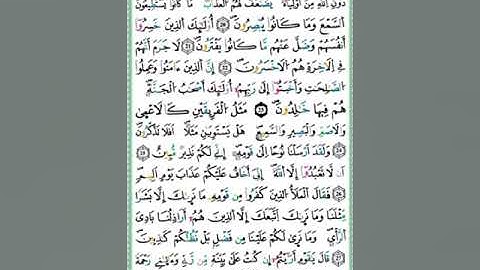 دُونِ ٱللَّهِ مِنْ أَوْلِيَآءَ يُضَٰعَفُ لَهُمُ ٱلْعَذَابُ مَا كَانُوا۟ يَسْتَطِيعُونَ
ٱلسَّمْعَ وَمَا كَانُوا۟ يُبْصِرُونَ ٢٠ أُو۟لَٰٓئِكَ ٱلَّذِينَ خَسِرُوٓا۟
أَنفُسَهُمْ وَضَلَّ عَنْهُم مَّا كَانُوا۟ يَفْتَرُونَ ٢١ لَا جَرَمَ أَنَّهُمْ
فِى ٱلْءَاخِرَةِ هُمُ ٱلْأَخْسَرُونَ ٢٢ إِنَّ ٱلَّذِينَ ءَامَنُوا۟ وَعَمِلُوا۟
ٱلصَّٰلِحَٰتِ وَأَخْبَتُوٓا۟ إِلَىٰ رَبِّهِمْ أُو۟لَٰٓئِكَ أَصْحَٰبُ ٱلْجَنَّةِ
هُمْ فِيهَا خَٰلِدُونَ ٢٣ مَثَلُ ٱلْفَرِيقَيْنِ كَٱلْأَعْمَىٰ
وَٱلْأَصَمِّ وَٱلْبَصِيرِ وَٱلسَّمِيعِ هَلْ يَسْتَوِيَانِ مَثَلًا أَفَلَا تَذَكَّرُونَ
٢٤ وَلَقَدْ أَرْسَلْنَا نُوحًا إِلَىٰ قَوْمِهِۦٓ إِنِّى لَكُمْ نَذِيرٌ مُّبِينٌ ٢٥
أَن لَّا تَعْبُدُوٓا۟ إِلَّا ٱللَّهَ إِنِّىٓ أَخَافُ عَلَيْكُمْ عَذَابَ يَوْمٍ أَلِيمٍ
٢٦ فَقَالَ ٱلْمَلَأُ ٱلَّذِينَ كَفَرُوا۟ مِن قَوْمِهِۦ مَا نَرَىٰكَ إِلَّا بَشَرًا
مِّثْلَنَا وَمَا نَرَىٰكَ ٱتَّبَعَكَ إِلَّا ٱلَّذِينَ هُمْ أَرَاذِلُنَا بَادِىَ
ٱلرَّأْىِ وَمَا نَرَىٰ لَكُمْ عَلَيْنَا مِن فَضْلٍۭ بَلْ نَظُنُّكُمْ كَٰذِبِينَ
٢٧ قَالَ يَٰقَوْمِ أَرَءَيْتُمْ إِن كُنتُ عَلَىٰ بَيِّنَةٍ مِّن رَّبِّى وَءَاتَىٰنِى رَحْمَةً